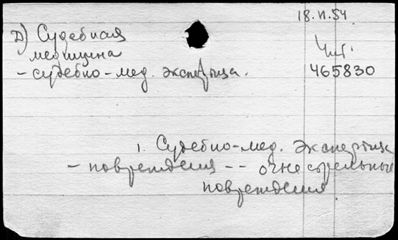 18.VI.54.
D) Судебная
медицина
Ч.Г.
– судебно-мед. экспертиза.
465830
1. Судебно-мед. экспертиза
– повреждения -- огнестрельные
повреждения